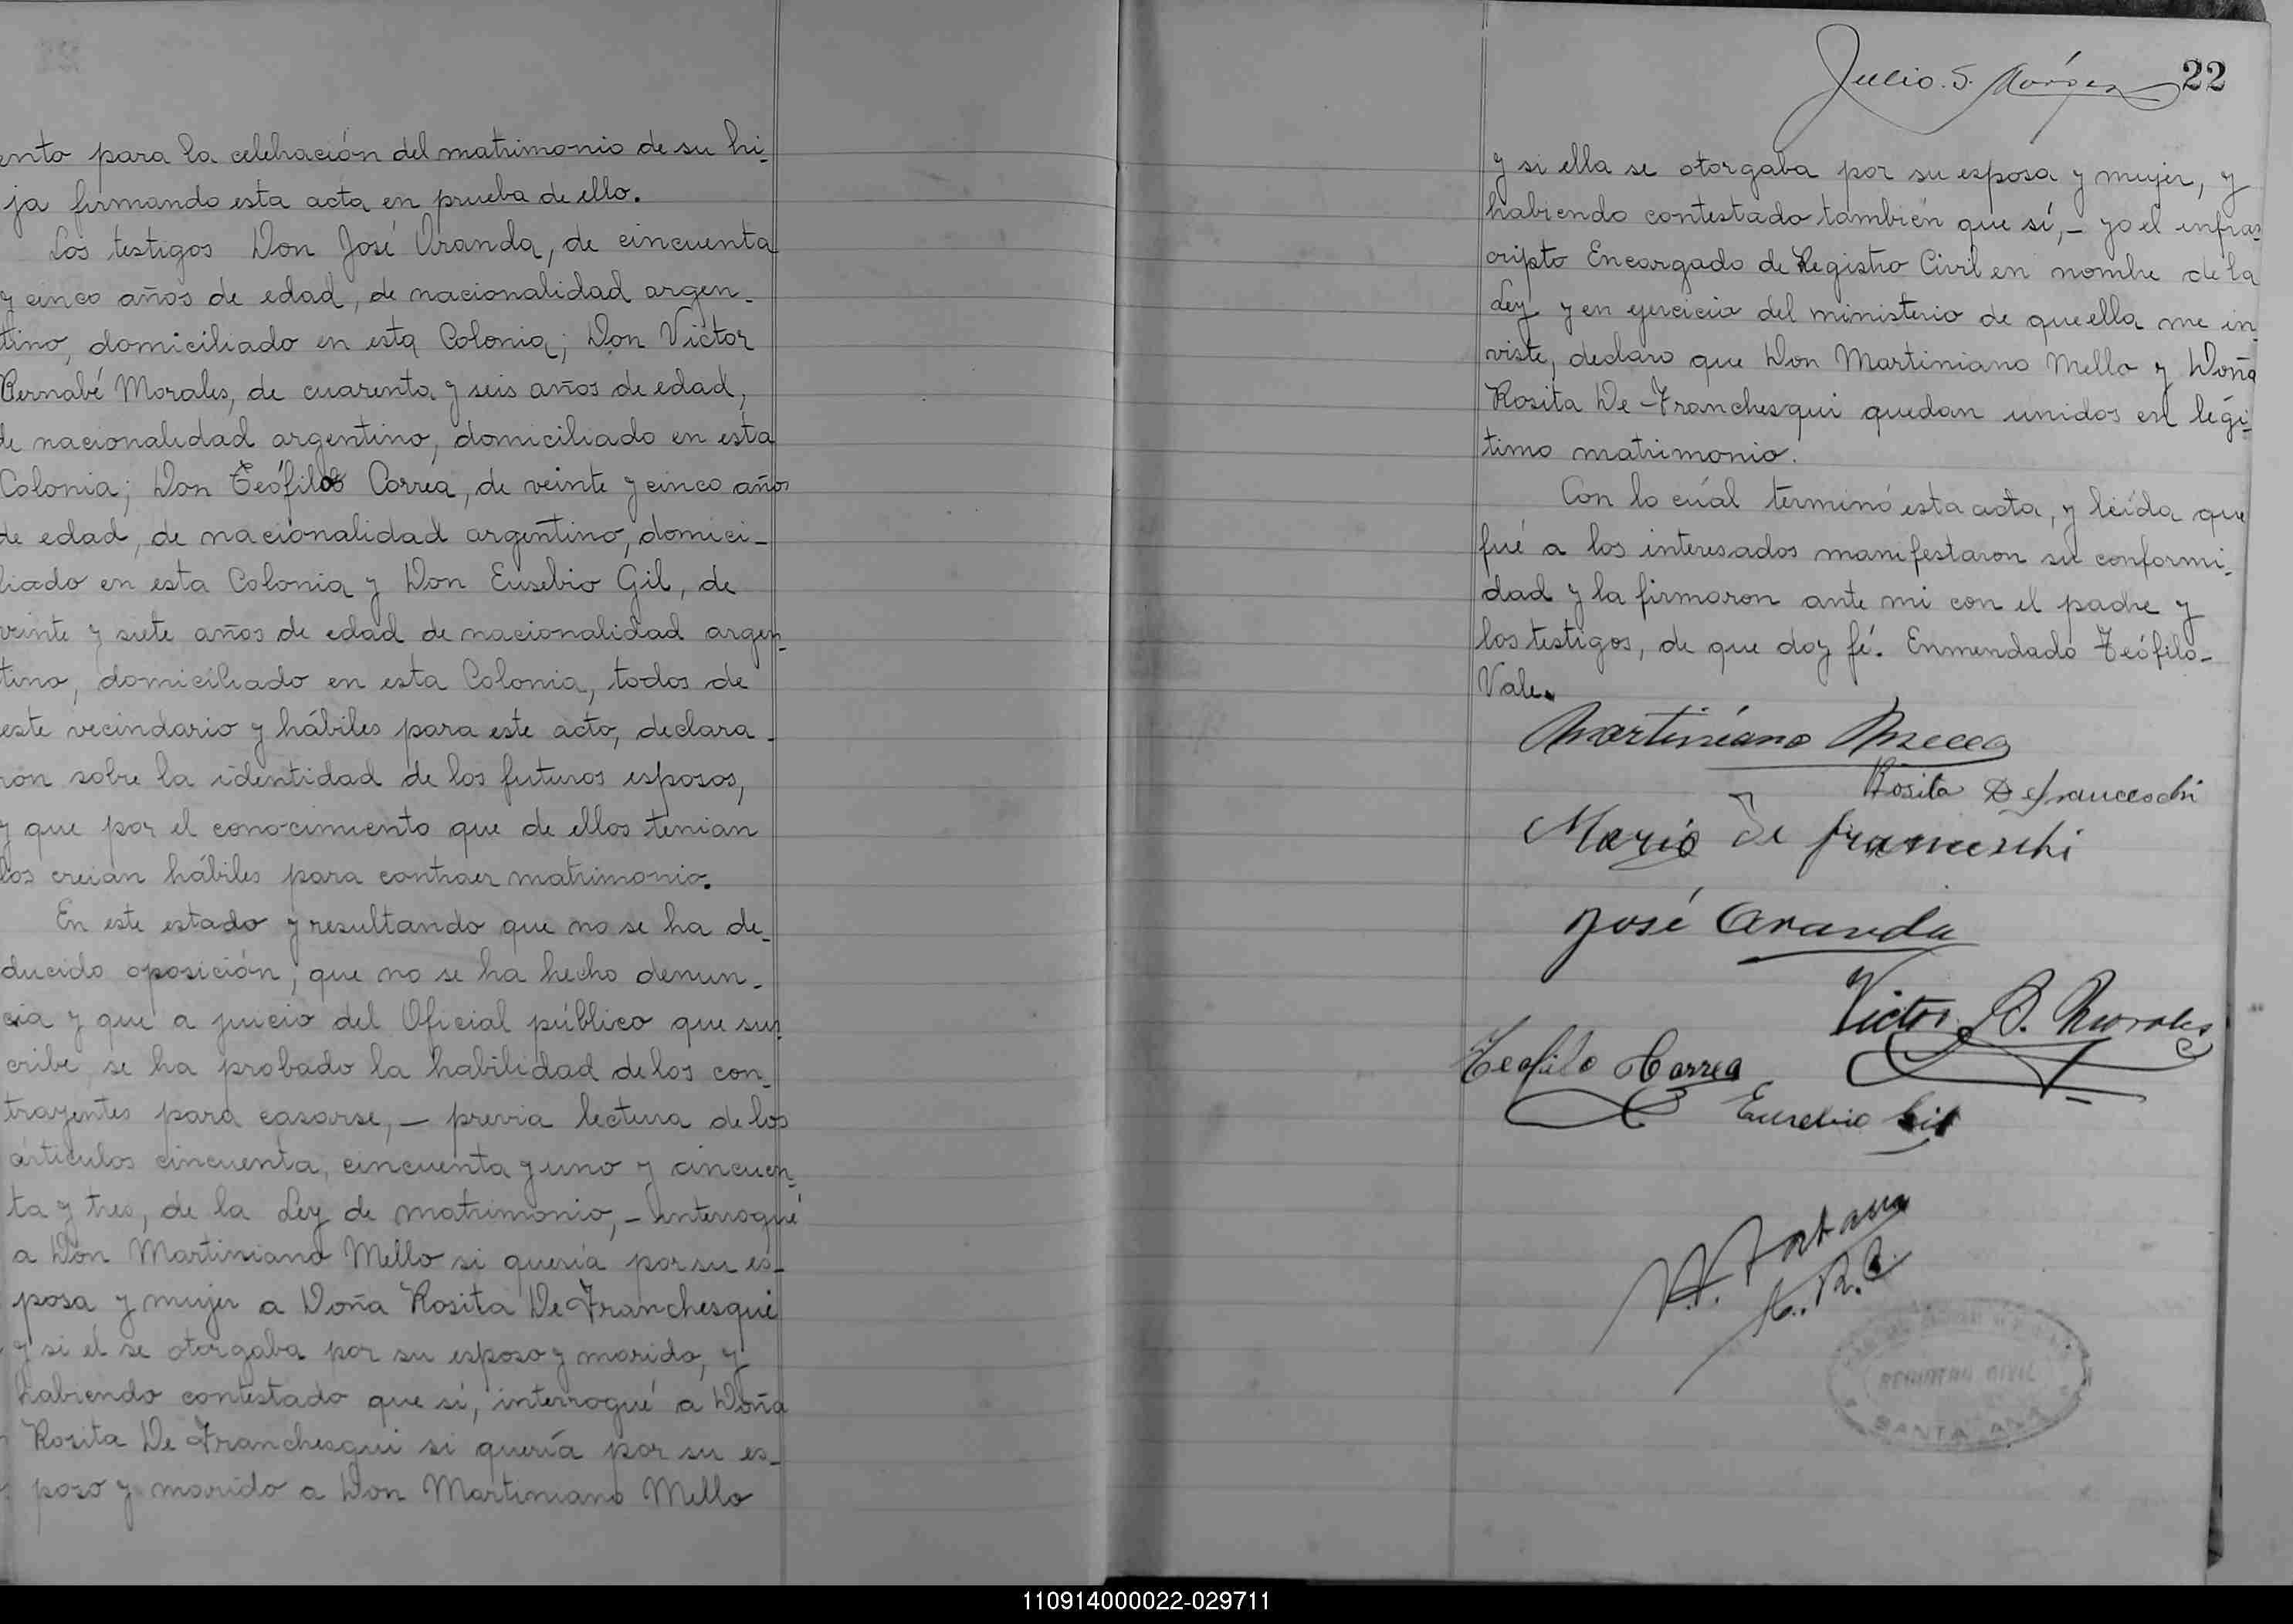 ento para la celebración del matrimonio de su hi-
ja firmando esta acta en prueba de ello.
Los testigos Don José Aranda, de cincuenta
y cinco años de edad, de nacionalidad argen-
tino, domiciliado en esta Colonia; Don Victor
Bernabé Morales, de cuarenta y seis años de edad,
de nacionalidad argentino, domiciliado en esta
Colonia; Don Teófilo Correa, de veinte y cinco años
de edad, de nacionalidad argentino, domici-
liado en esta Colonia y Don Eusebio Gil, de
veinte y siete años de edad de nacionalidad argen-
tino, domiciliado en esta Colonia, todos de
este vecindario y hábiles para este acto, declara-
ron sobre la identidad de los futuros esposos,
y que por el conocimiento que de ellos tenian
los creian hábiles para contraer matrimonio.
En este estado y resultando que no se ha de-
ducido oposición, que no se ha hecho denun-
cia y que a juicio del Oficial público que sus-
cribe se ha probado la habilidad de los con-
trayentes para casarse, — previa lectura de los
artículos cincuenta, cincuenta y uno y cincuen-
ta y tres, de la Ley de matrimonio, – interrogué
a Don Martiniano Mello si quería por su es-
posa y mujer a Doña Rosita De Franchesqui
y si él se otorgaba por su esposo y marido, y
habiendo contestado que sí, interrogué a Doña
Rosita De Franchesqui si quería por su es-
poso y marido a Don Martiniano Mello
Julio S.
22
y si ella se otorgaba por su esposa y mujer, y
habiendo contestado también que sí, – yo el infras-
cripto Encargado de Registro Civil en nombre de la
Ley y en ejercicio del ministerio de que ella me in-
viste, declaro que Don Martiniano Mello y Doña
Rosita De-Franchesqui quedan unidos en legí-
timo matrimonio.
Con lo cúal terminó esta acta, y leída que
fué a los interesados manifestaron su conformi-
dad y la firmaron ante mi con el padre y
los testigos, de que doy fé. Enmendado Teófilo-
Vale.
Martiniano Mello
Rosita Defranceschi
Mario De franceschi
José Aranda
Victor B. Morales
Teofilo Correa
Eusebio Gil
REGISTRO CIVIL
SANTA ANA
110914000022-029711